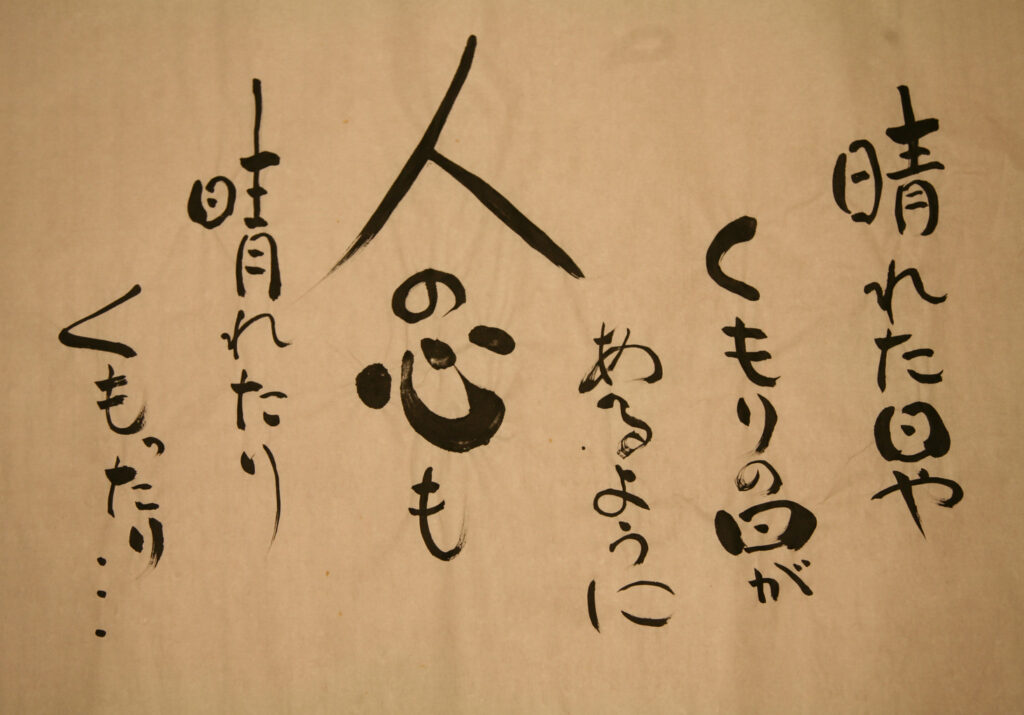 晴れた日や
くもりの日が
あるように
人の心も
晴れたり
くもったり…